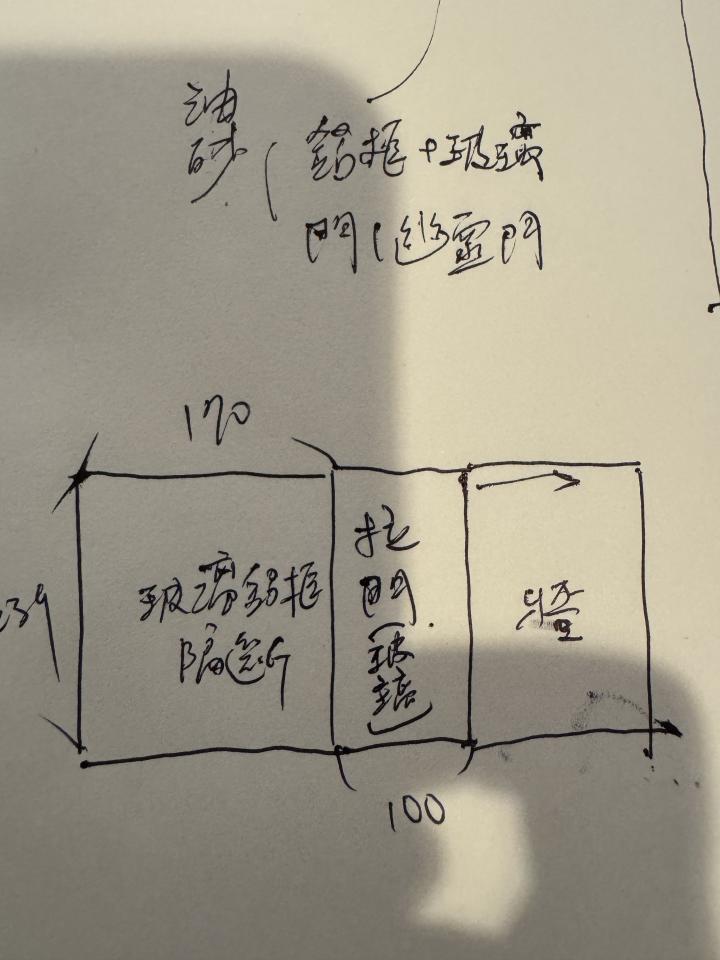 油砂
鋁框+玻璃
門(幽靈門
170
玻璃鋁框
隔斷
拉門(玻璃)
牆
100